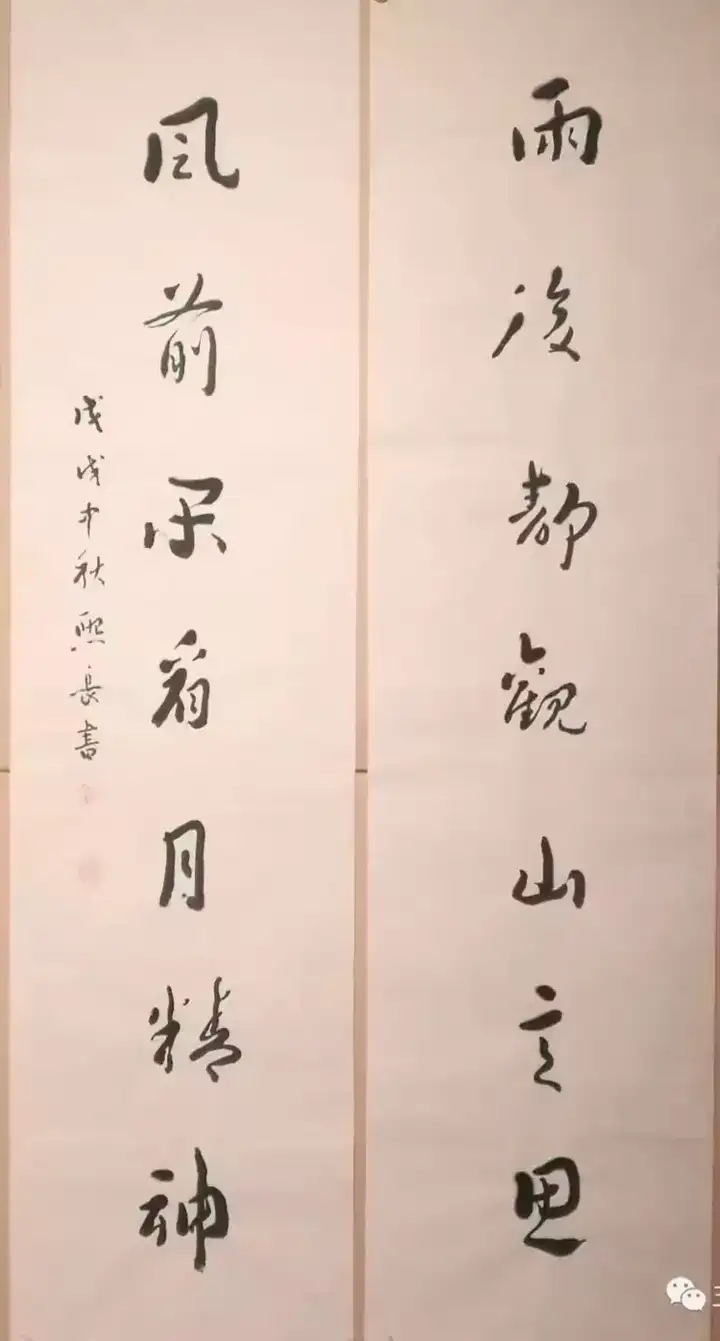 雨後静觀山意思
風前閑看月精神
戊戌中秋熙長書